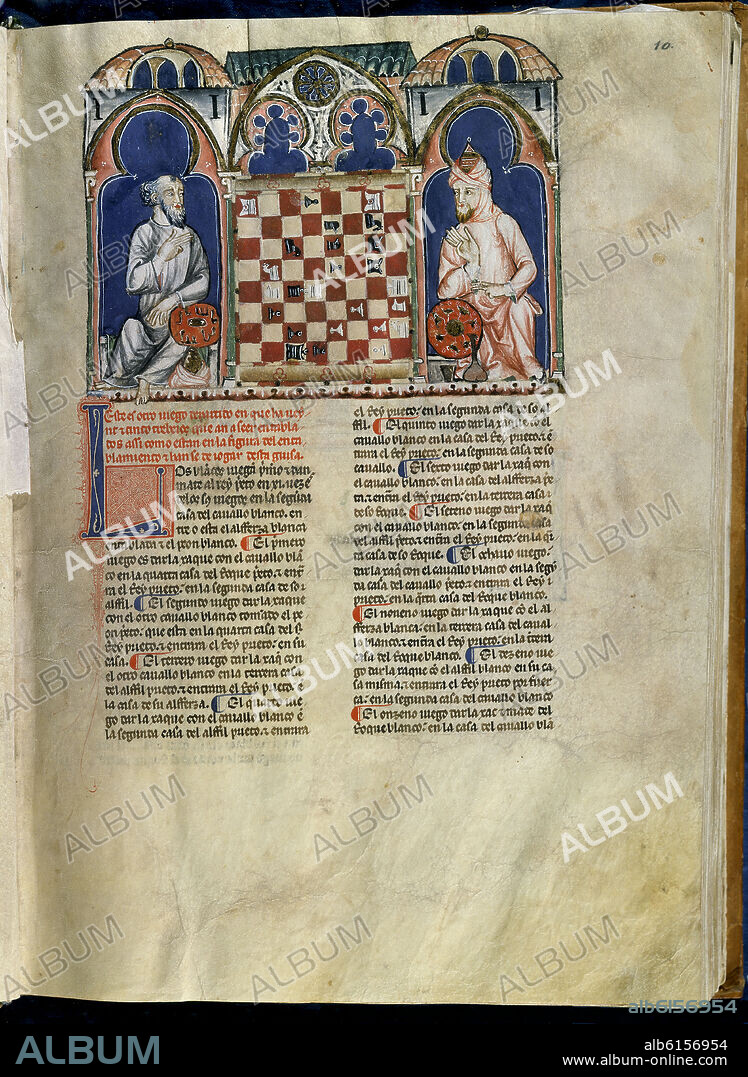 10.
Este es otro iuego departido en que ha uey
nt & cinco trebeios que an a seer entabla
dos assi como estan en la figura del enta
blamiento & han se de iogar desta guisa.
Los blancos iuegan primero & dan
mate al Rey
en la segunda
casa del cauallo blanco. en
o esta el alfferza blanca
& el peon blanco. El primero
iuego es dar la xaque con el cauallo blan
co en la quarta casa del Roque prieto. & entra
el Rey prieto en la segunda casa de so
alffil. El segundo iuego dar la xaque
con el otro cauallo blanco tomado el pe
on prieto que esta en la quarta casa del
Rey prieto & entrara el Rey prieto. en su
casa. El tercero iuego dar la xaque con
el otro cauallo blanco en la tercera casa
del alffil prieto & entrara el Rey prieto en
la casa de su alfferza. El quarto iue
go dar la xaque con el cauallo blanco en
la segunda casa del alffil prieto. & entrara
el Rey prieto. en la segunda casa de so al
ffil. El quinto iuego dar la xaque con el
cauallo blanco en la casa del Rey prieto. & en
trara el Rey prieto. en la segunda casa de so
cauallo. El sexto iuego dar la xaque con el
cauallo blanco. en la casa del alfferza prie
ta. & entra el Rey prieto. en la tercera casa
de so Roque. El seteno iuego dar la xaque
con el cauallo blanco. en la segunda casa
del alffil prieto. & entra el Rey prieto. en la quar
ta casa de so Roque. El ochauo iuego.
dar la xaque con el cauallo blanco. en la segun
da casa del cauallo prieto. & entrara el Rey
prieto. en la quarta casa del Roque blanco.
El noueno iuego dar la xaque con el al
fferza blanca. en la tercera casa del cauallo
blanco. & entra el Rey prieto. en la tercera
casa del Roque blanco. El dezeno iue
go dar la xaque con el alffil blanco en su ca
sa misma. & entrara el Rey prieto por fuer
ça. en la segunda casa del cauallo blanco
El onzeno iuego dar la xac & mate del
Roque blanco. en la casa del cauallo blan
ALBUM
alb6156954
ALBUM
alb6156954
www.album-online.com